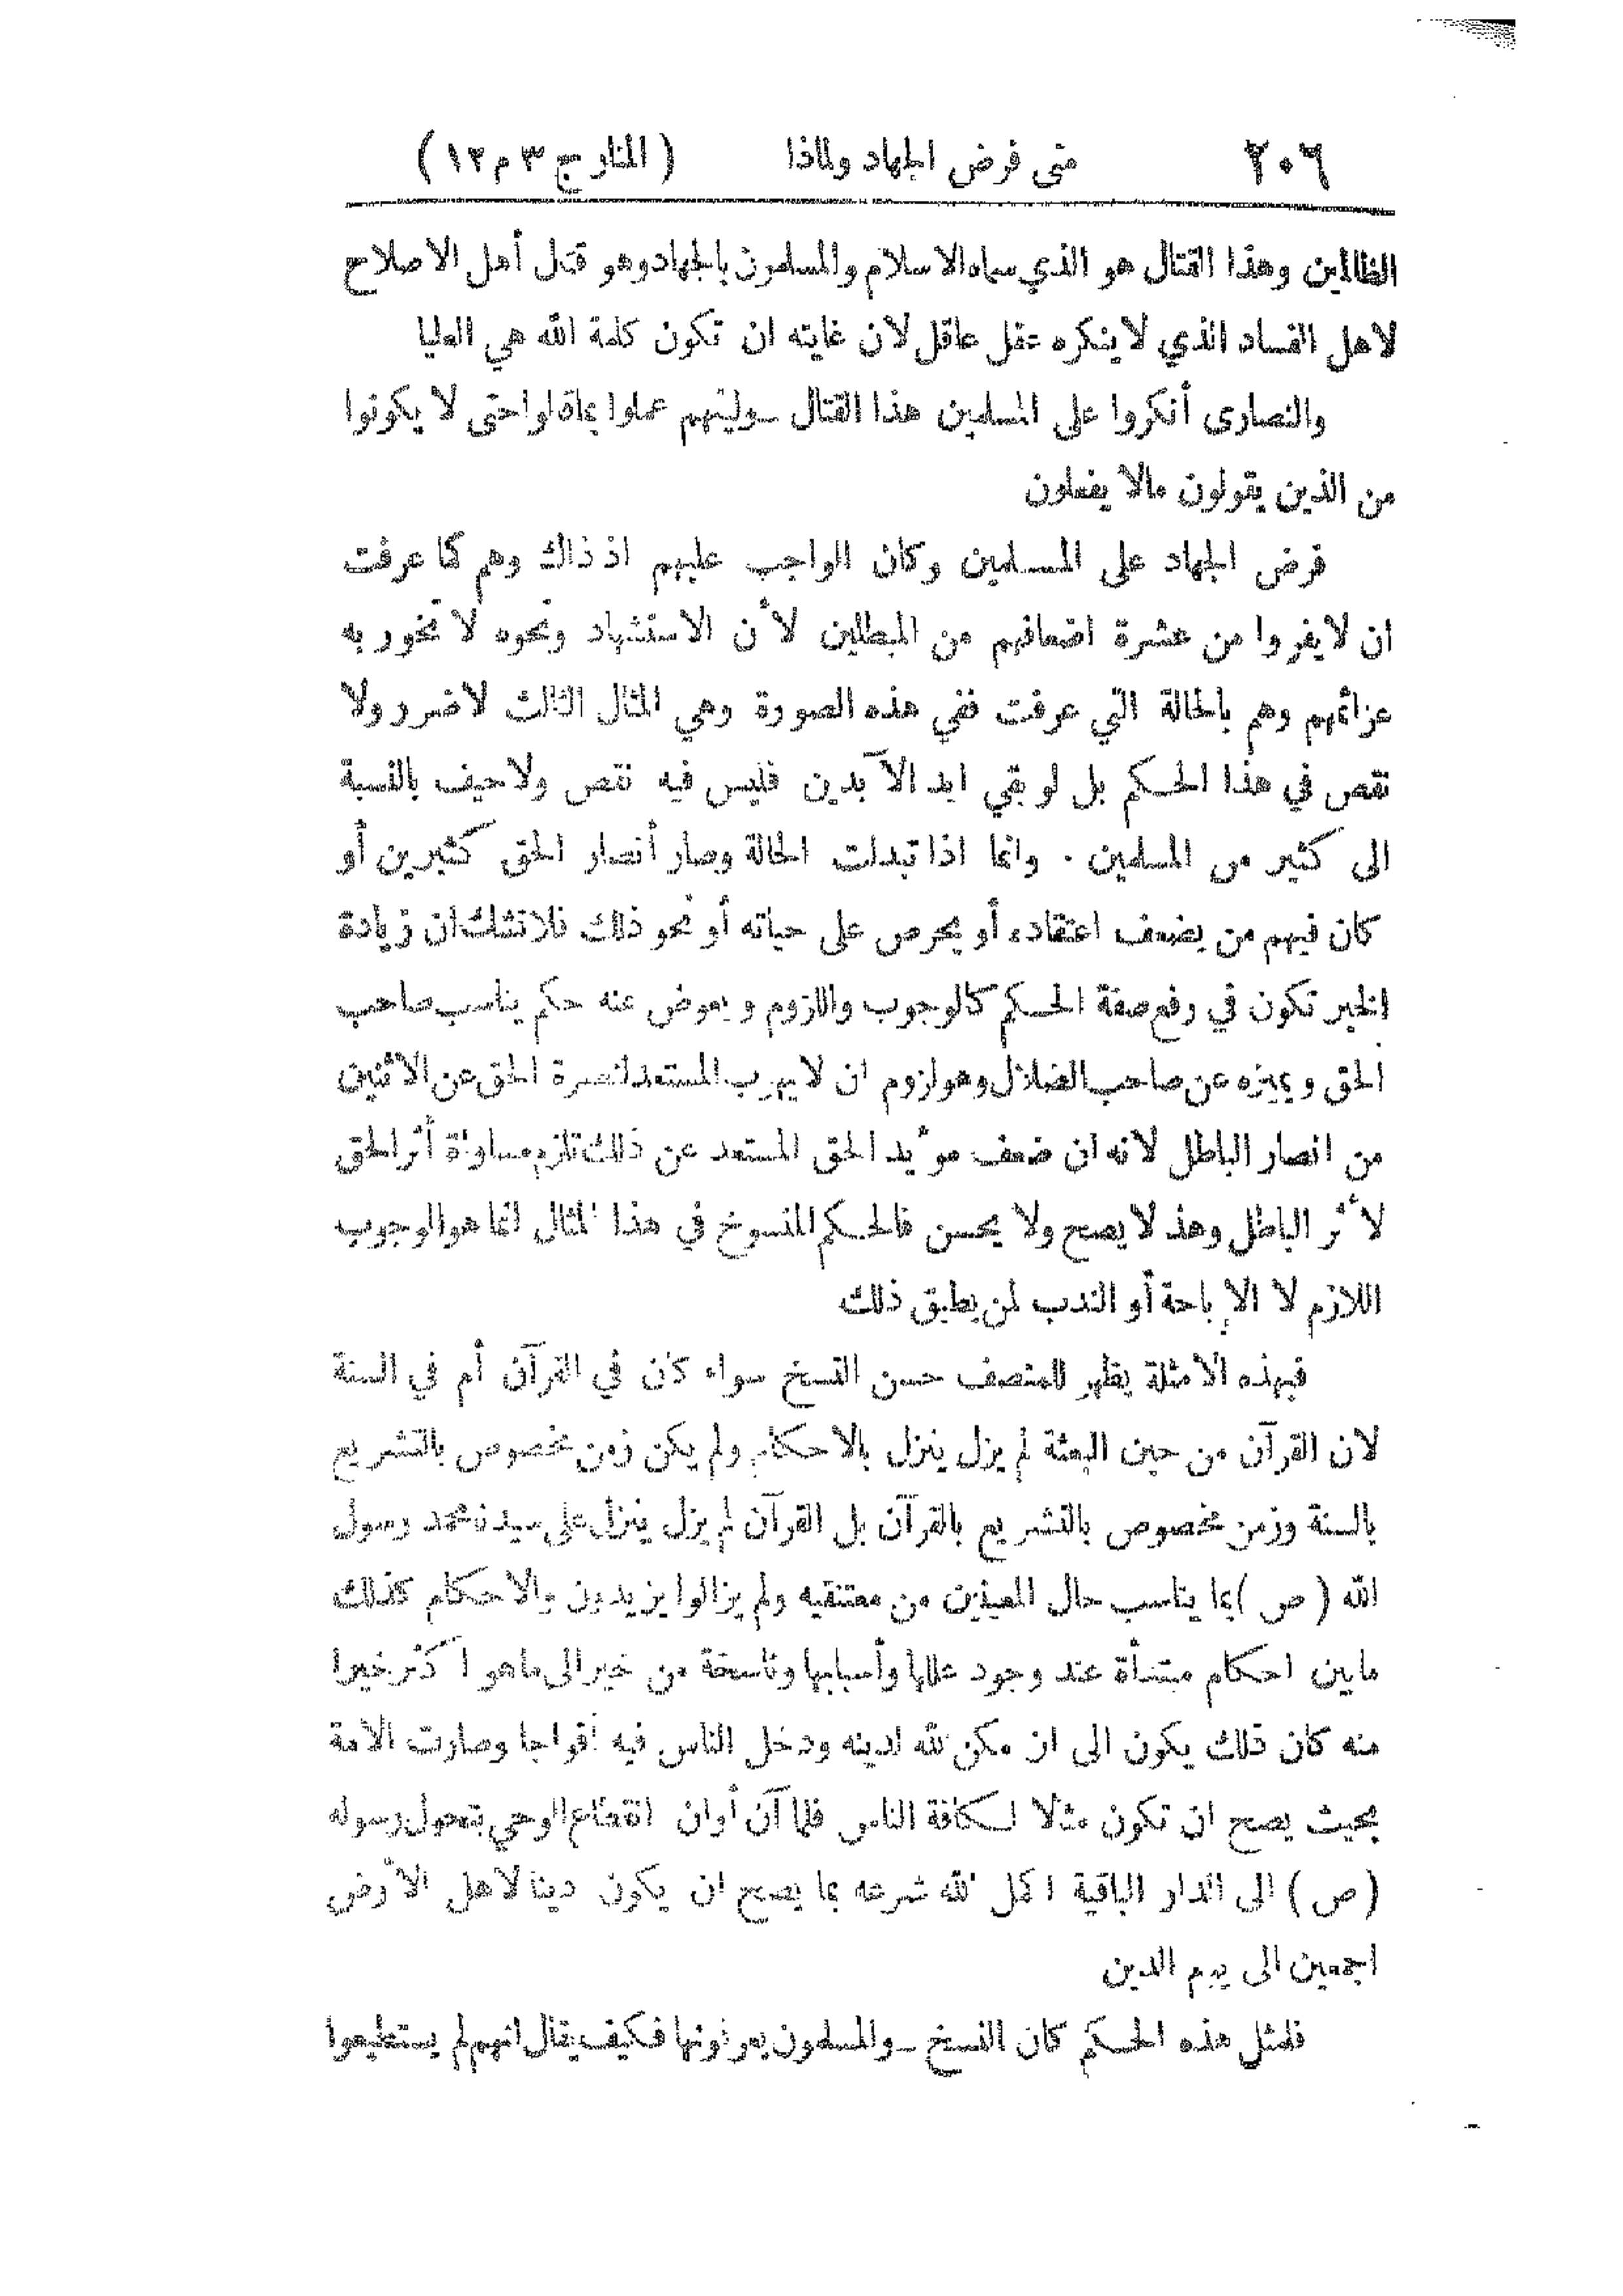 ٢٠٦ متى فرض الجهاد ولماذا (المنار ج ٣ م ١٢)
الظالمين وهذا القتال هو الذي سماه الاسلام والمسلمون بالجهاد وهو قتل أهل الاصلاح
لاهل الفساد الذي لا ينكره عقل عاقل لان غايته ان تكون كلمة الله هي العليا
والنصارى أنكروا على المسلمين هذا القتال ــ وليتهم عملوا بما قالوا حتى لا يكونوا
من الذين يقولون مالا يفعلون
فرض الجهاد على المسلمين وكان الواجب عليهم اذ ذاك وهم كما عرفت
ان لا يفروا من عشرة اضعافهم من المبطلين لأن الاستشهاد ونحوه لا تخور به
عزائمهم وهم بالحالة التي عرفت ففي هذه الصورة وهي المثال الثالث لا ضرر ولا
نقص في هذا الحكم بل لو بقي ابد الآبدين فليس فيه نقص ولا حيف بالنسبة
الى كثير من المسلمين . وانما اذا تبدلت الحالة وصار أنصار الحق كثيرين أو
كان فيهم من يضعف اعتقاده أو يحرص على حياته أو نحو ذلك فلا تشك ان زيادة
الخير تكون في رفع صفة الحكم كالوجوب واللزوم ويعوض عنه حكم يناسب صاحب
الحق ويميزه عن صاحب الضلال وهو لزوم ان لا يهرب المستعد لنصرة الحق عن الاثنين
من انصار الباطل لانه ان ضعف مؤيد الحق المستعد عن ذلك تلزم مساواة أثر الحق
لأثر الباطل وهذ لا يصح ولا يحسن فالحكم المنسوخ في هذا المثال انما هو الوجوب
اللازم لا الإباحة أو الندب لمن يطيق ذلك
فبهذه الأمثلة يظهر للمنصف حسن النسخ سواء كان في القرآن أم في السنة
لان القرآن من حين البعثة لم يزل ينزل بالاحكام ولم يكن زمن مخصوص بالتشريع
بالسنة وزمن مخصوص بالتشريع بالقرآن بل القرآن لم يزل ينزل على سيدنا محمد رسول
الله (ص) بما يناسب حال من معتنقيه ولم يزالوا يزيدون والاحكام كذلك
مابين احكام مبتدأة عند وجود عللها وأسبابها وناسخة من خير الى ماهو اكثر خيرا
منه كان ذلك يكون الى ان مكن الله لدينه ودخل الناس فيه أفواجا وصارت الامة
بحيث يصح ان تكون مثلا لكافة الناس فلما آن أوان انقطاع الوحي بتحول رسوله
(ص) الى الدار الباقية اكمل الله شرعه بما يصح ان يكون دينا لاهل الأرض
اجمعين الى يوم الدين
فلمثل هذه الحكم كان النسخ ــ والمسلمون يعرفونها فكيف يقال انهم لم يستطيعوا